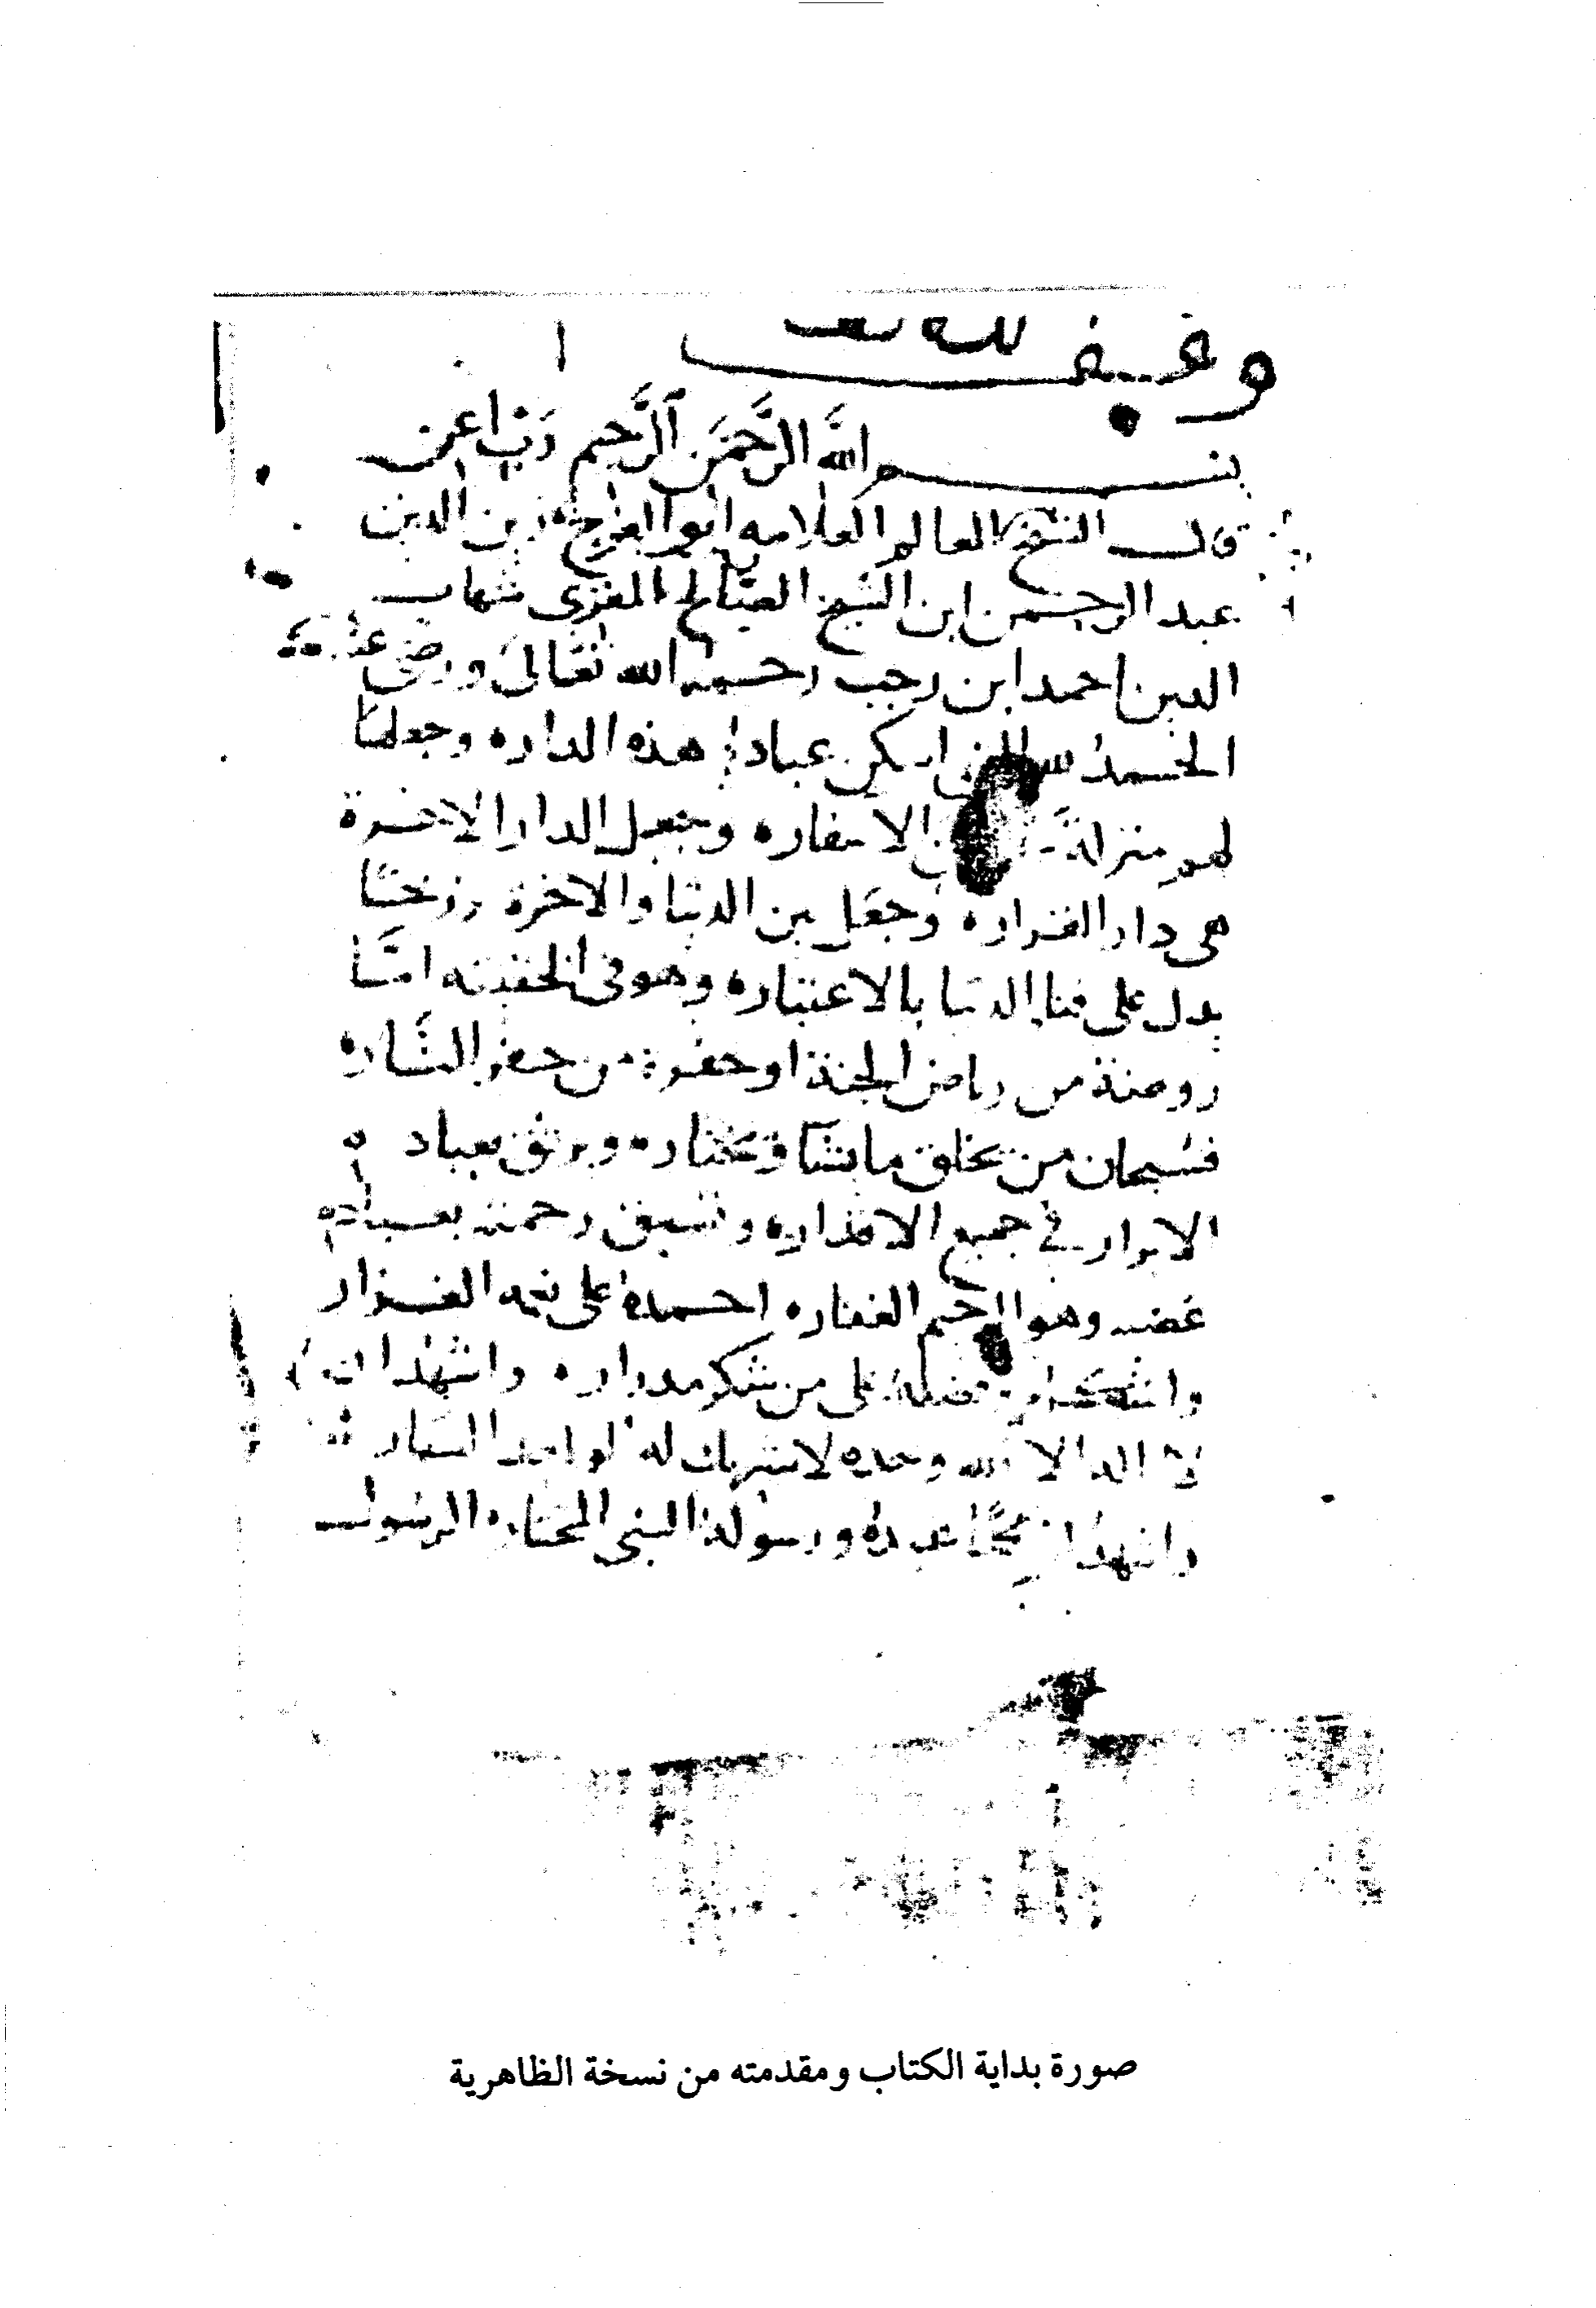 وقف لله تعالى
بسم الله الرَّحمَن الرَّحيم رَبّ اعن
قال الشيخ العالم العلامه ابو الفرج زين الدين
عبد الرحمن ابن الشيخ الصَّالح المقرى شهاب
الدين احمد ابن رجب رحمه الله تعَالىَ ورضى عنه
الحمد لله اسكن عباده هذه الدار ه وجعلها
لهم منزلة الاسفار ه وجعل الدار الاخرة
هى دار القرار ه وجعَل بين الدنيا والاخرة برزخًا
يدل على فنا الدنيا بالاعتبار ه وهو فى الحقيقه امَّا
روضة من رياض الجنة او حفرة من حفر النَّار ه
فسُبحان من يخلق ما يشا ويختار ه ويرفق بعباده
الابرار فى جميع الاقدار ه وتسبق رحمته بعباده
غضبه وهو الرحيم الغفار ه احمده على نعمه الغزار
واشكره وفضله على من شكر مدرار ه واشهد ان
لا اله الا الله وحده لا شريك له الواحد القهار
واشهد ان محمدًا عبده ورسوله النبى المختار ه الرسول
صورة بداية الكتاب ومقدمته من نسخة الظاهرية